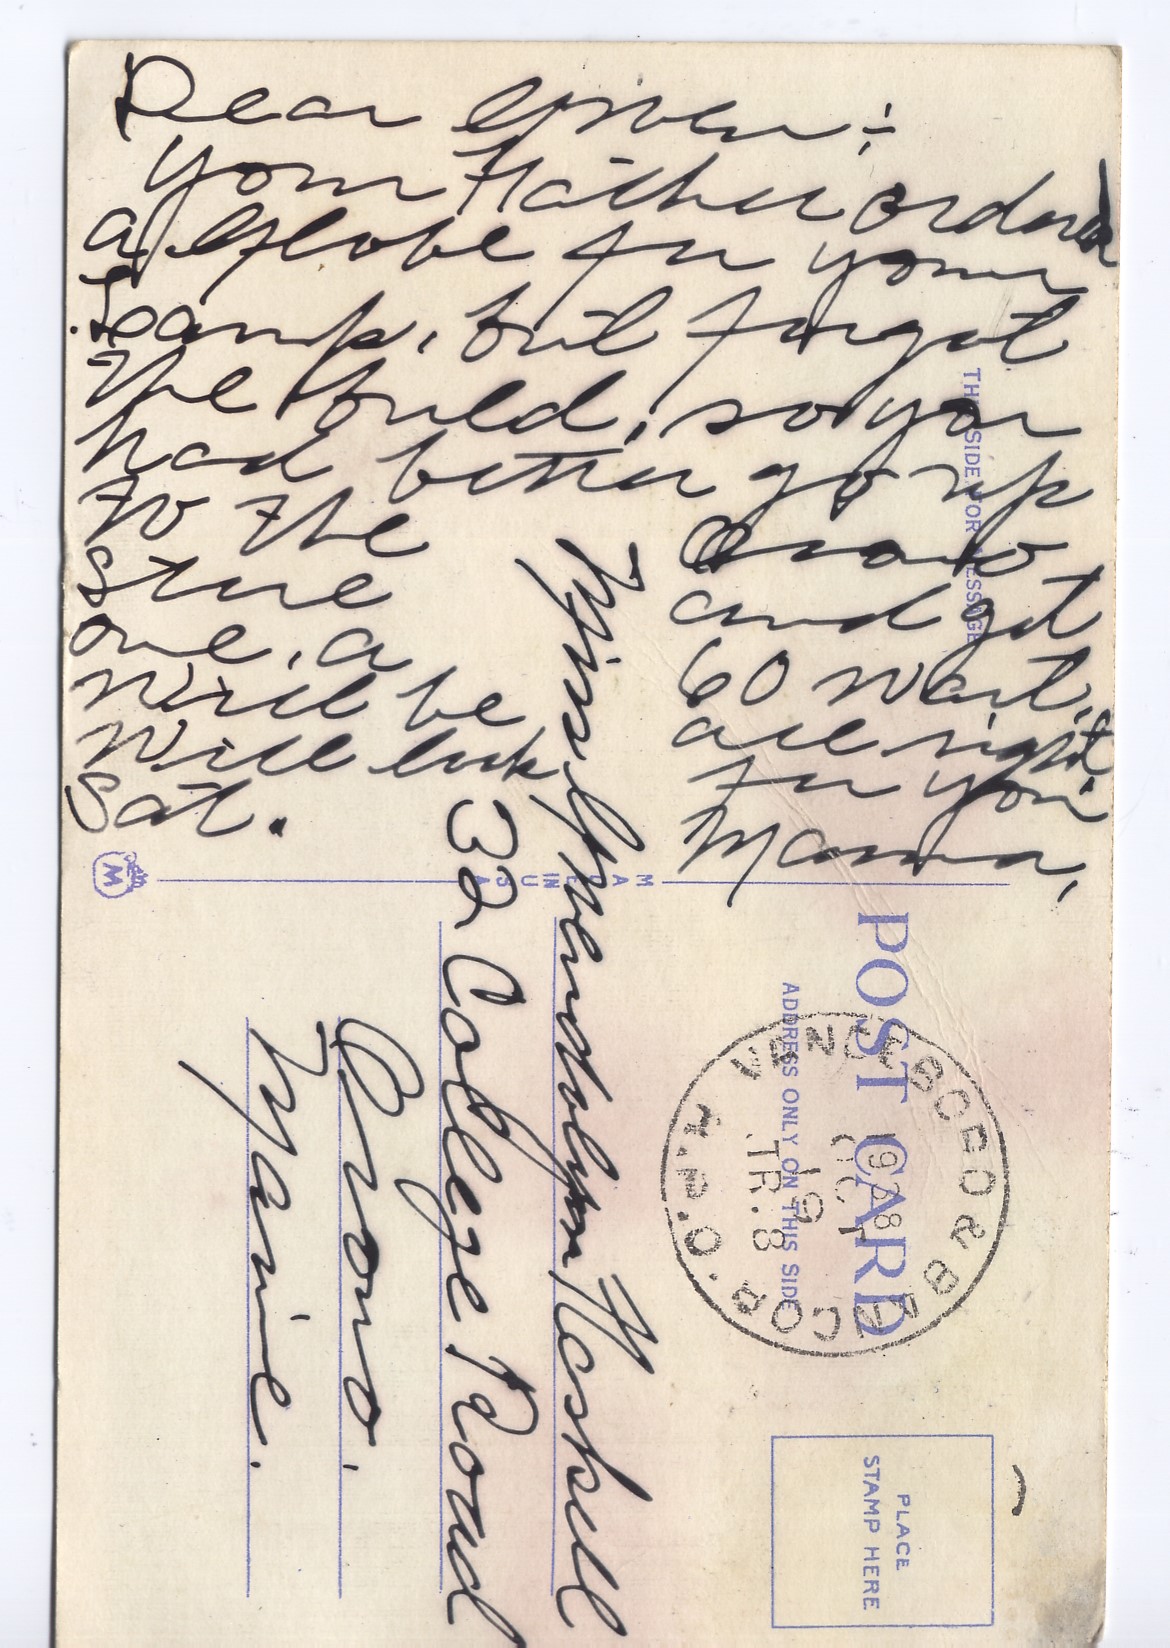 Dear Gwen:
Your Father ordered
a Globe for your
Lamp, but forgot
the build, so you
had better go up
to the
store
one, a
Will be
Will look
Sat.
Orono
and get
60 Watt,
all right
for you
Mama,
Miss Gwendolyn Haskell
32 College Road
Orono.
Maine.
THIS SIDE FOR MESSAGE
M
MADE IN U S A
POST CARD
ADDRESS ONLY ON THIS SIDE
VANCEBORO & BANGOR
1938
OCT
19
TR. 8
R.P.O.
PLACE
STAMP HERE